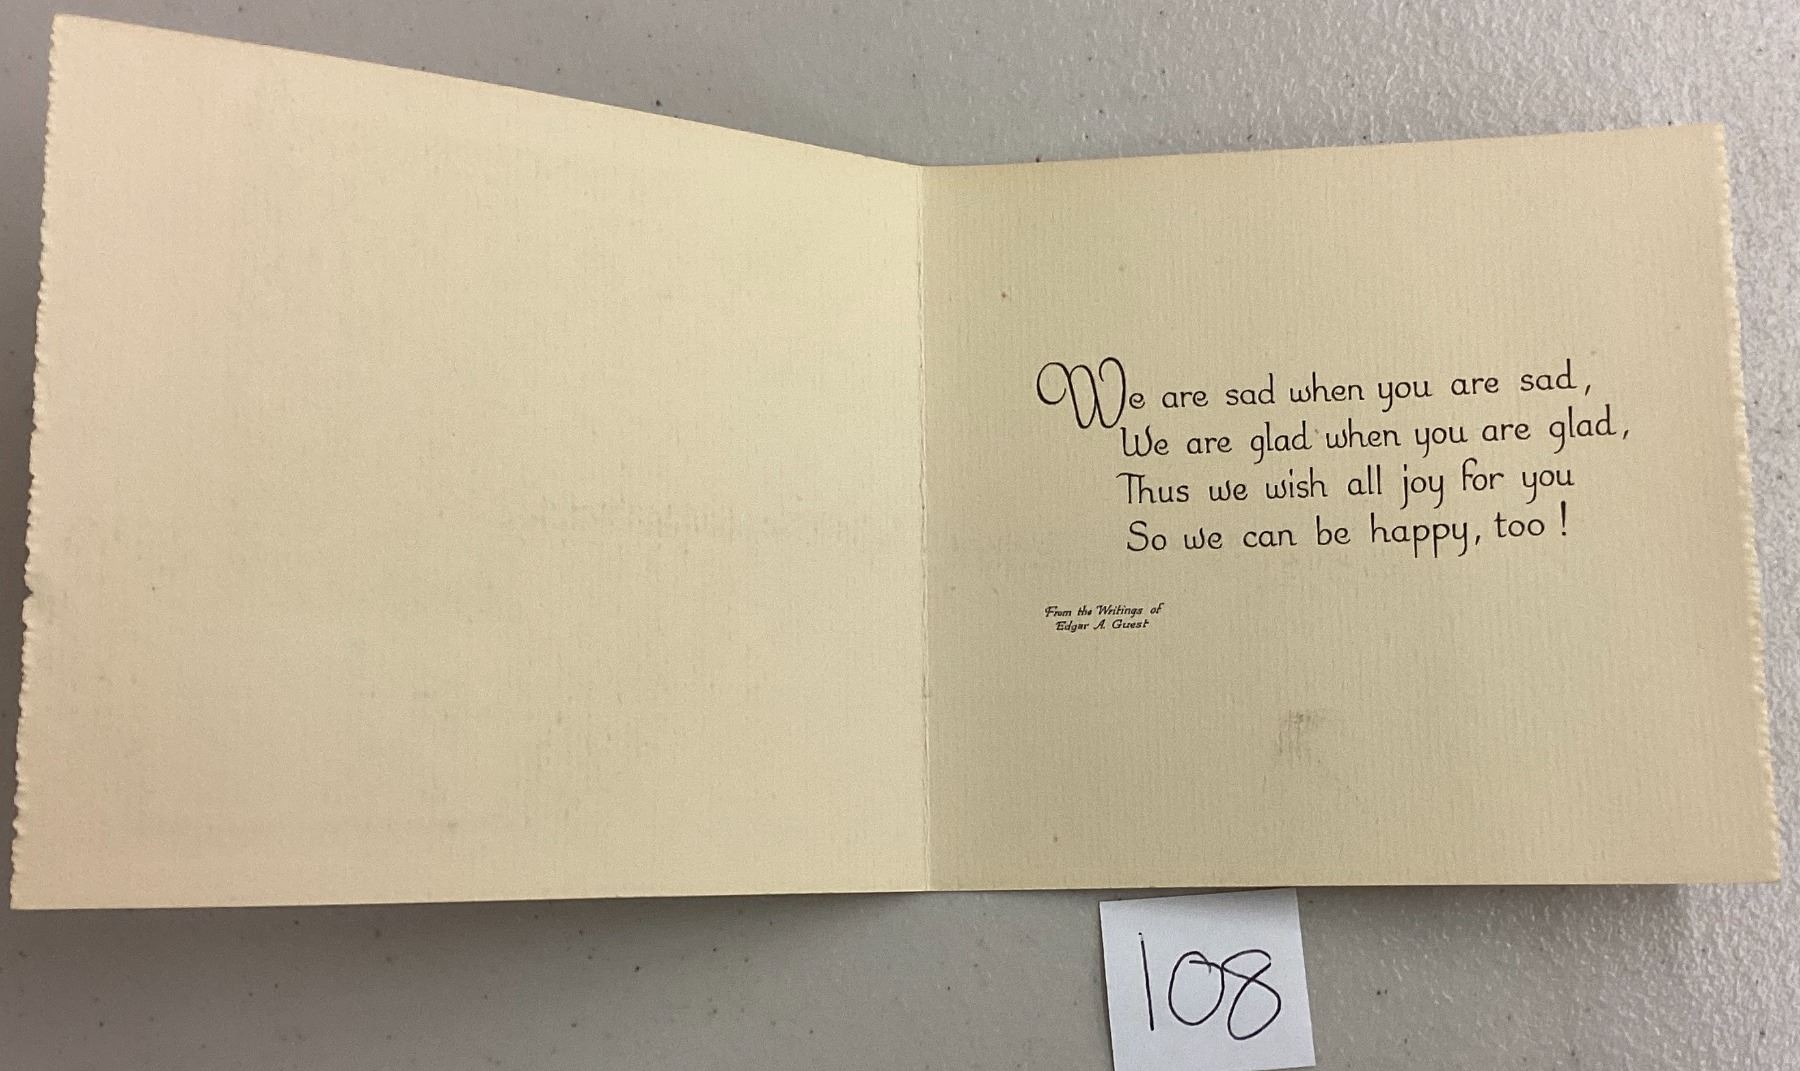 We are sad when you are sad,
We are glad when you are glad,
Thus we wish all joy for you
So we can be happy, too!
From the Writings of
Edgar A. Guest
108